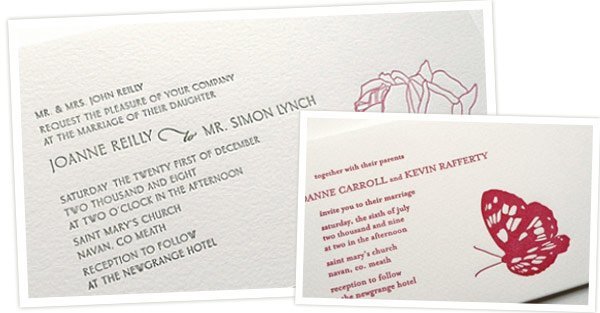 MR. & MRS. JOHN REILLY
REQUEST THE PLEASURE OF YOUR COMPANY
AT THE MARRIAGE OF THEIR DAUGHTER
JOANNE REILLY to MR. SIMON LYNCH
SATURDAY, THE TWENTY FIRST OF DECEMBER
TWO THOUSAND AND EIGHT
AT TWO O'CLOCK IN THE AFTERNOON
SAINT MARY'S CHURCH
NAVAN, CO MEATH
RECEPTION TO FOLLOW
AT THE NEWGRANGE HOTEL
together with their parents
OANNE CARROLL and KEVIN RAFFERTY
invite you to their marriage
saturday, the sixth of july
two thousand and nine
at two in the afternoon
saint mary's church
navan, co. meath
reception to follow
the newgrange hotel